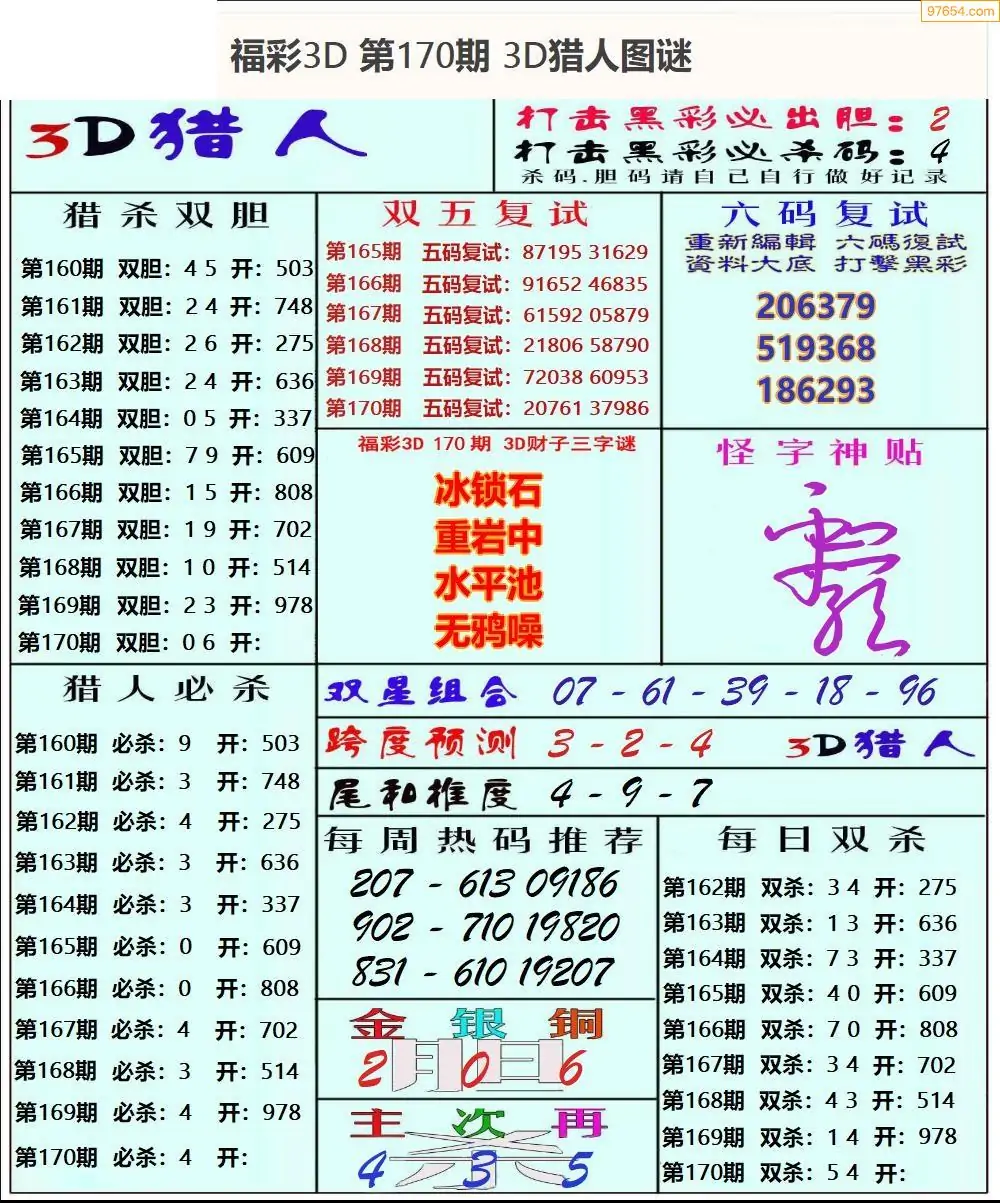 97654.com
福彩3D 第170期 3D猎人图谜
3D猎人
打击黑彩必出胆：2
打击黑彩必杀码：4
杀码.胆码请自己自行做好记录
猎杀双胆
第160期 双胆：4 5 开：503
第161期 双胆：2 4 开：748
第162期 双胆：2 6 开：275
第163期 双胆：2 4 开：636
第164期 双胆：0 5 开：337
第165期 双胆：7 9 开：609
第166期 双胆：1 5 开：808
第167期 双胆：1 9 开：702
第168期 双胆：1 0 开：514
第169期 双胆：2 3 开：978
第170期 双胆：0 6 开：
双五复试
第165期 五码复试：87195 31629
第166期 五码复试：91652 46835
第167期 五码复试：61592 05879
第168期 五码复试：21806 58790
第169期 五码复试：72038 60953
第170期 五码复试：20761 37986
六码复试
重新編輯 六碼復試
資料大底 打擊黑彩
206379
519368
186293
福彩3D 170 期 3D财子三字谜
冰锁石
重岩中
水平池
无鸦噪
怪字神贴
猎人必杀
第160期 必杀：9 开：503
第161期 必杀：3 开：748
第162期 必杀：4 开：275
第163期 必杀：3 开：636
第164期 必杀：3 开：337
第165期 必杀：0 开：609
第166期 必杀：0 开：808
第167期 必杀：4 开：702
第168期 必杀：3 开：514
第169期 必杀：4 开：978
第170期 必杀：4 开：
双星组合 07 - 61 - 39 - 18 - 96
跨度预测 3 - 2 - 4 3D猎人
尾和推度 4 - 9 - 7
每周热码推荐
207 - 613 09186
902 - 710 19820
831 - 610 19207
金银铜
胆
2 0 6
主次再
杀
4 3 5
每日双杀
第162期 双杀：3 4 开：275
第163期 双杀：1 3 开：636
第164期 双杀：7 3 开：337
第165期 双杀：4 0 开：609
第166期 双杀：7 0 开：808
第167期 双杀：3 4 开：702
第168期 双杀：4 3 开：514
第169期 双杀：1 4 开：978
第170期 双杀：5 4 开：